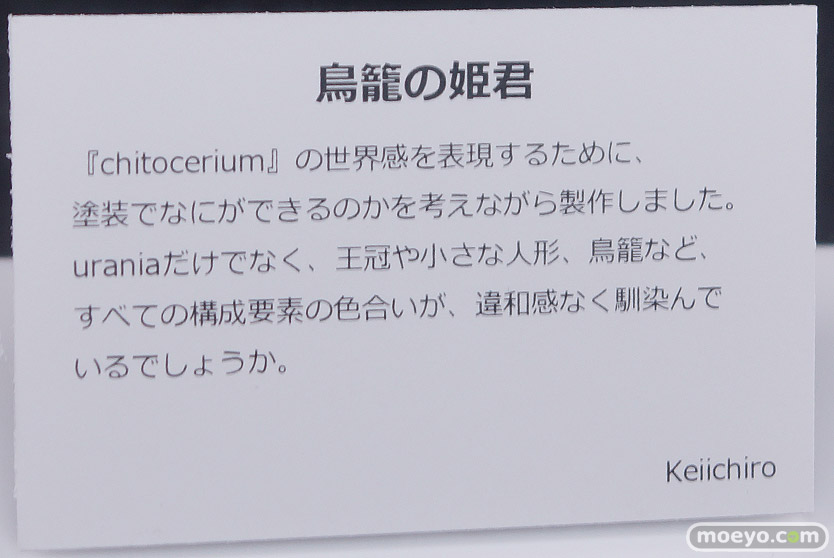 鳥籠の姫君
『chitocerium』の世界感を表現するために、
塗装でなにができるのかを考えながら製作しました。
uraniaだけでなく、王冠や小さな人形、鳥籠など、
すべての構成要素の色合いが、違和感なく馴染んで
いるでしょうか。
Keiichiro
moeyo.com